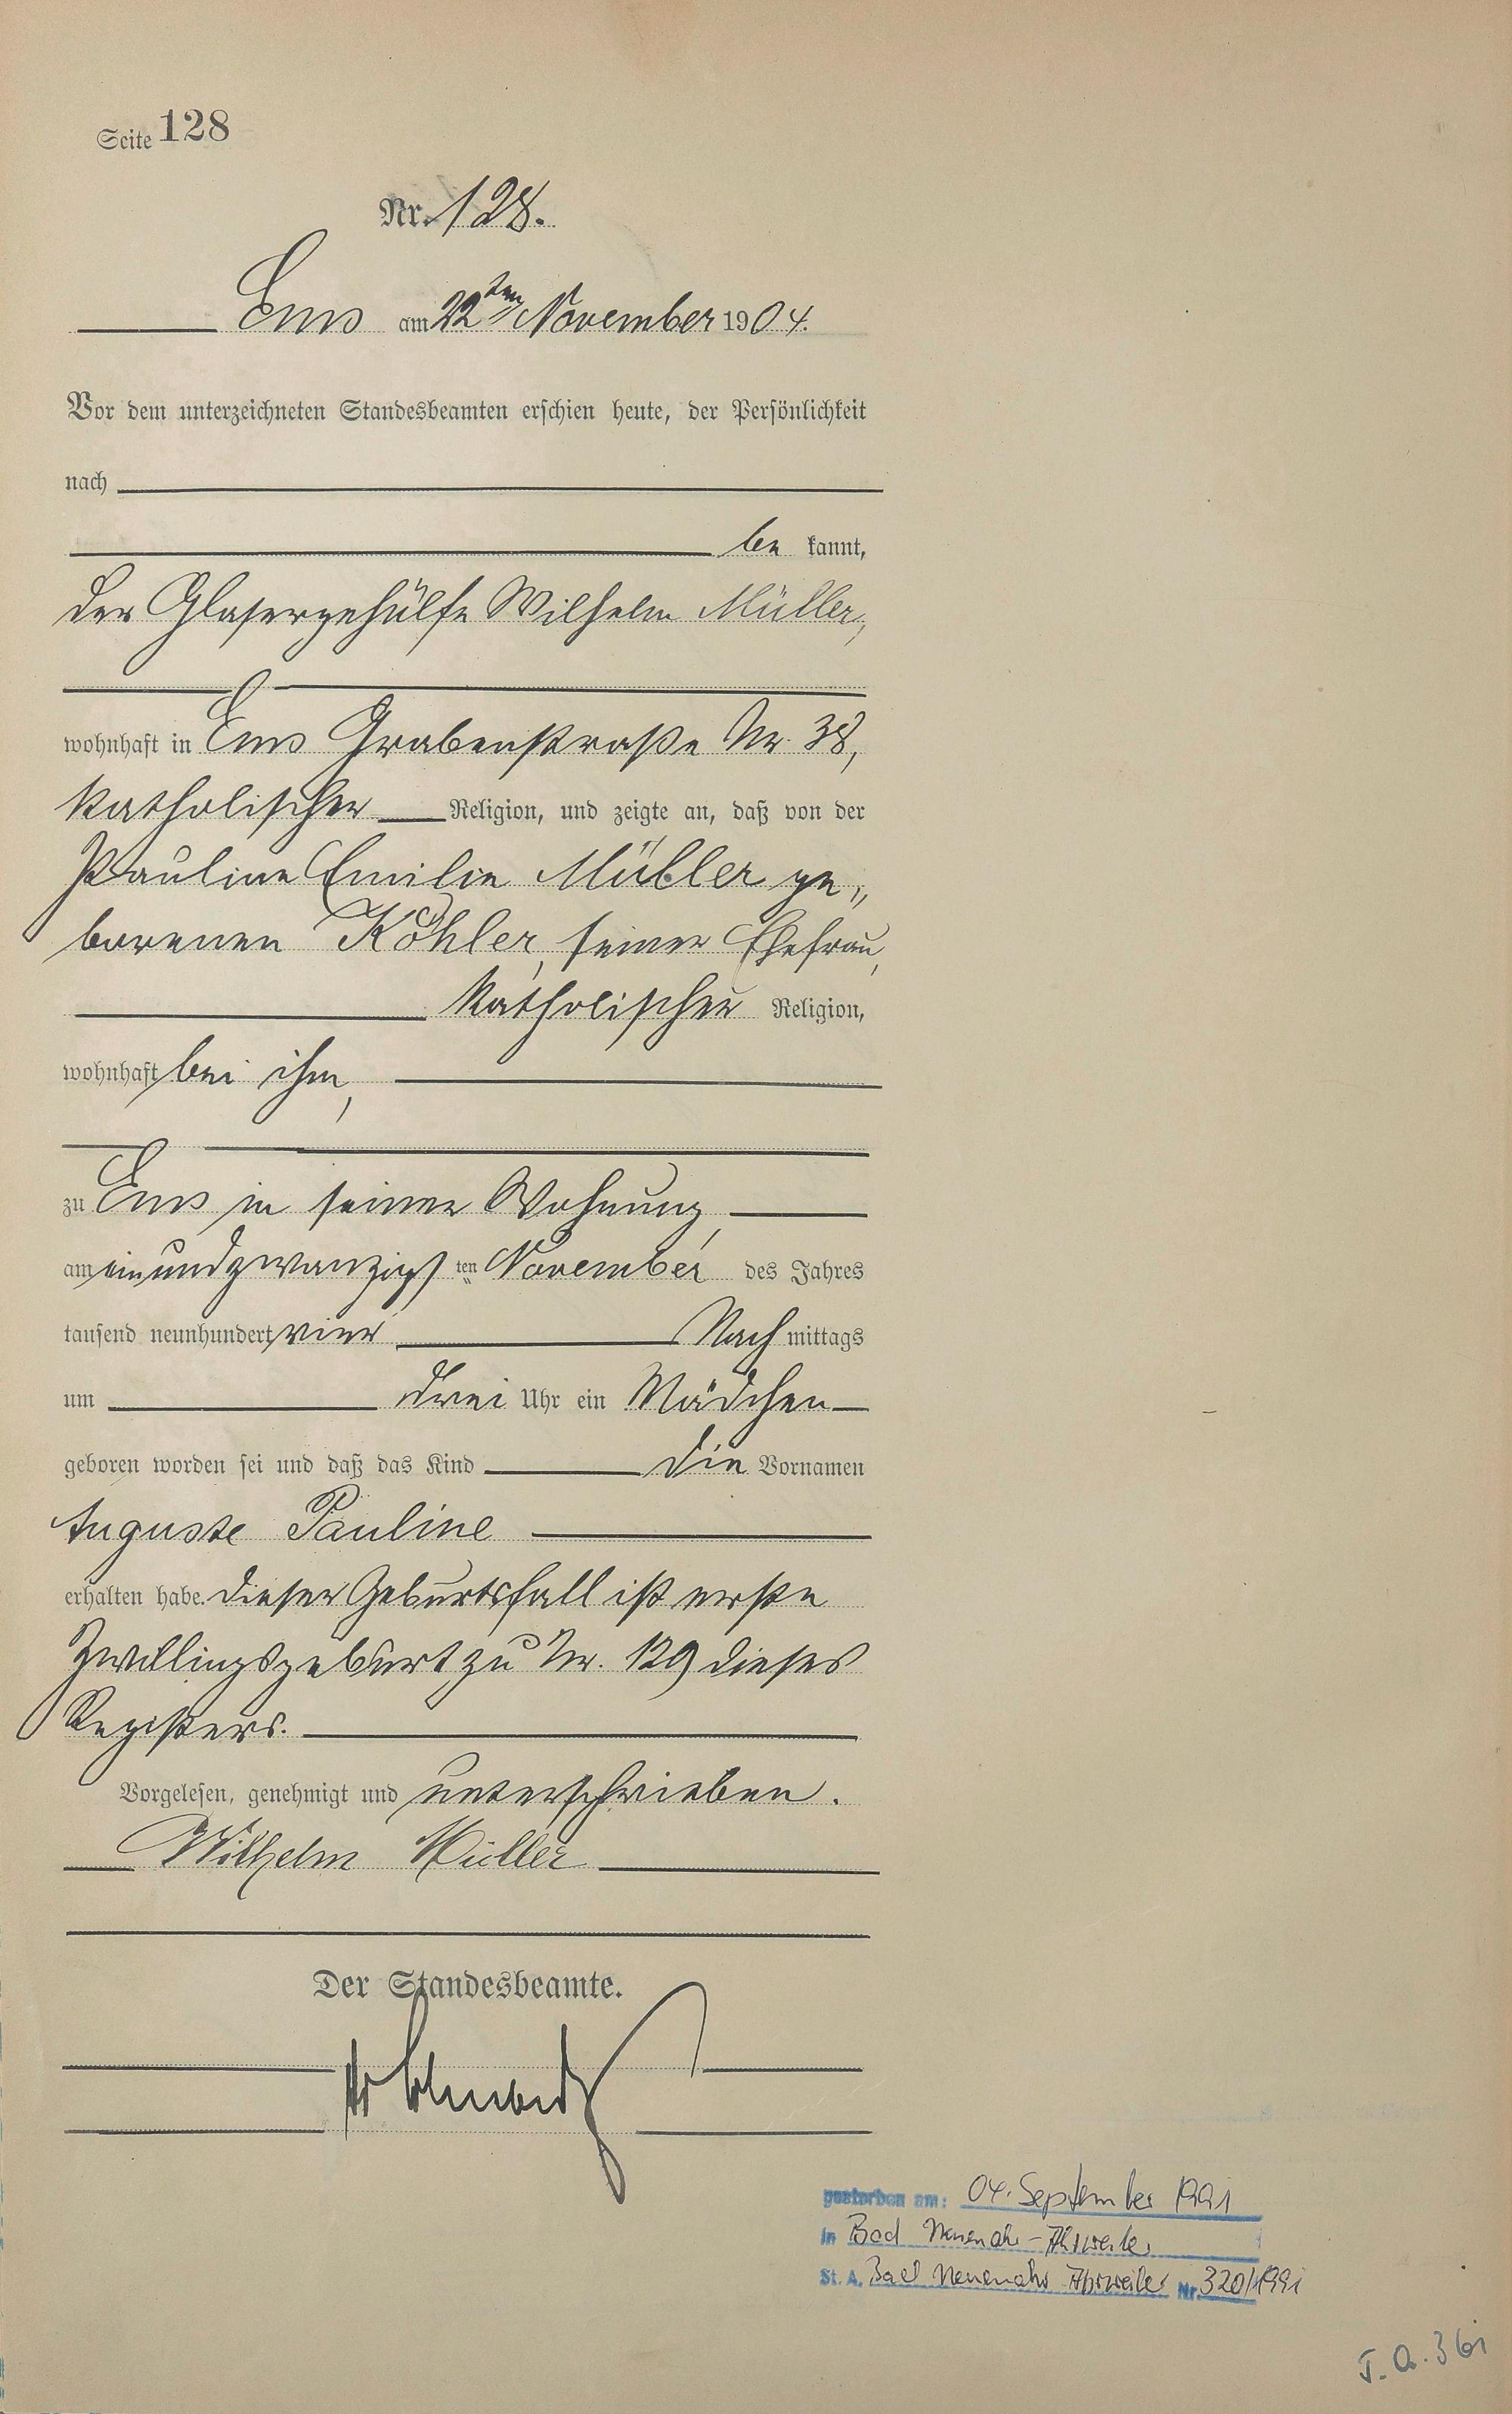 Seite 128
Nr. 128.
Ems am 22ten November 1904.
Vor dem unterzeichneten Standesbeamten erschien heute, der Persönlichkeit
nach
be kannt,
der Glasergehülfe Wilhelm Müller,
wohnhaft in Ems Grabenstraße Nr. 38,
katholischer Religion, und zeigte an, daß von der
Pauline Emilie Müller ge„
borenen Köhler, seiner Ehefrau,
katholischer Religion,
wohnhaft bei ihm,
zu Ems in seiner Wohnung,
am einundzwanzigsten November des Jahres
tausend neunhundert vier Nachmittags
um drei Uhr ein Mädchen
geboren worden sei und daß das Kind die Vornamen
Auguste Pauline
erhalten habe. Dieser Geburtsfall ist erste
Zwillingsgeburt zu Nr. 129 dieses
Registers.
Vorgelesen, genehmigt und unterschrieben.
Wilhelm Müller
Der Standesbeamte.
gestorben am: 04. September 1991
in Bad Neuenahr-Ahrweiler
St. A. Bad Neuenahr Ahrweiler Nr. 320/1991